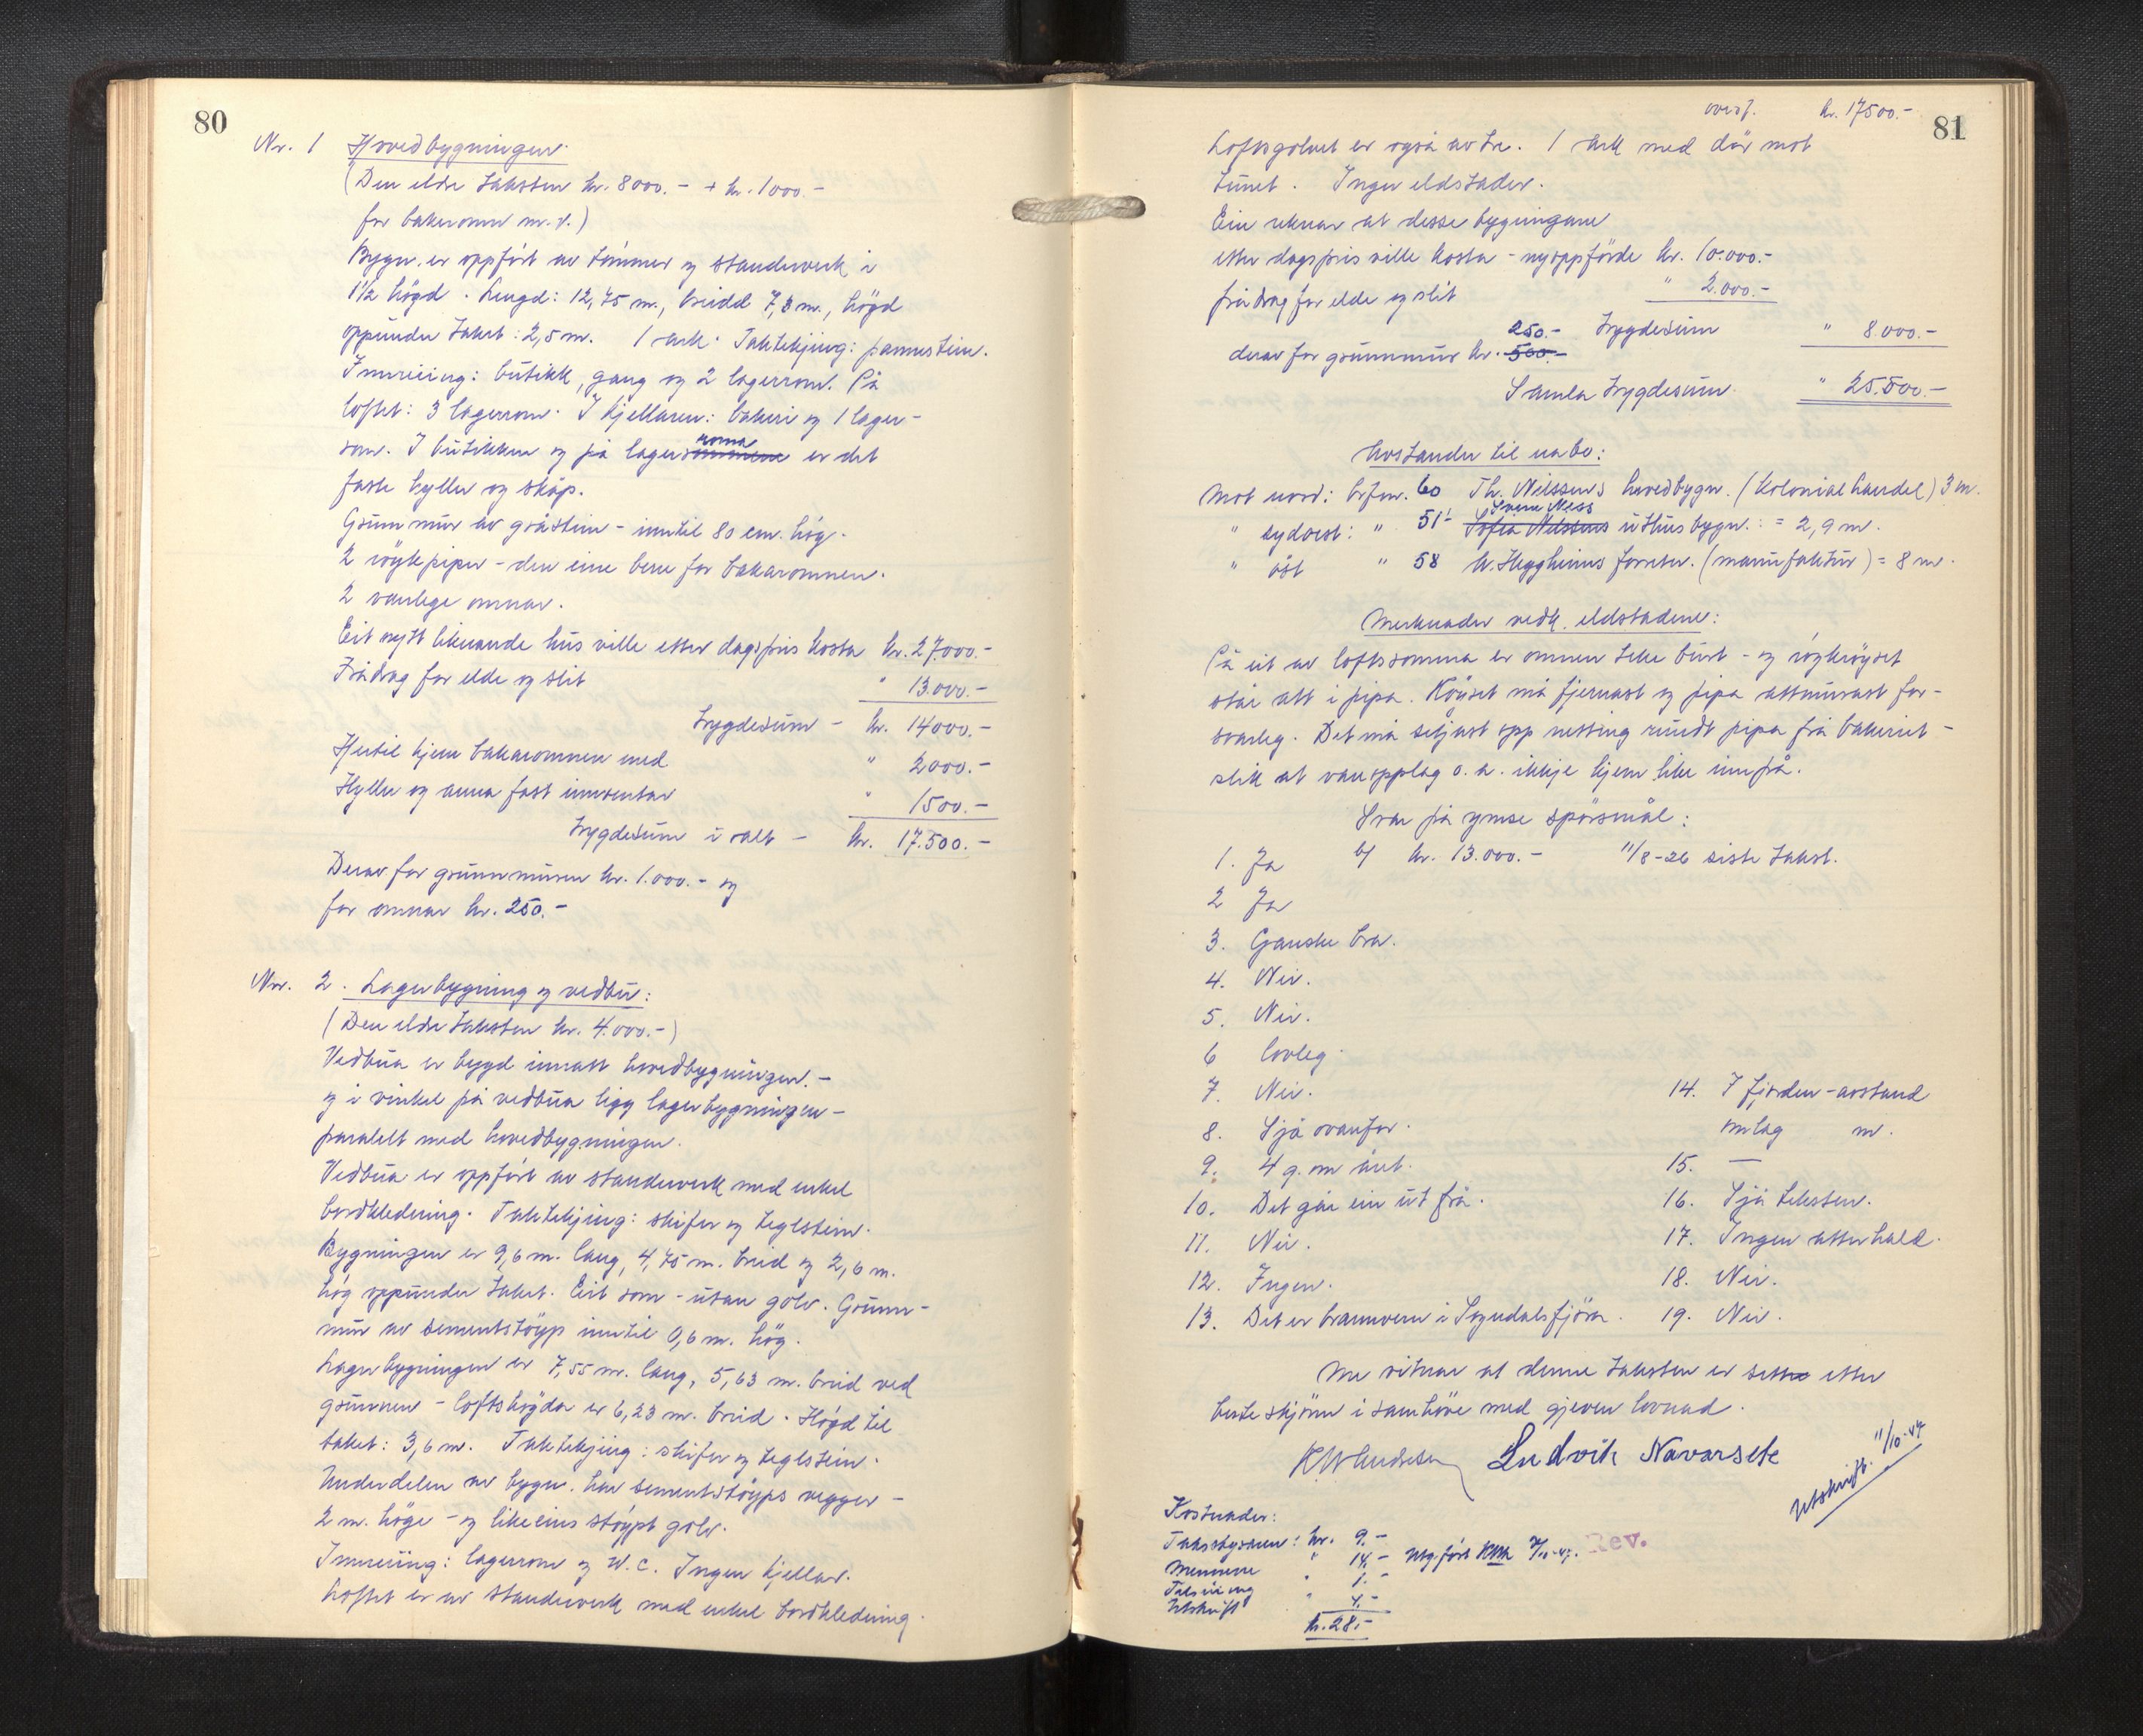 80
Nr. 1 Hovedbygningen.
(Den eldre taksten kr. 8000.- + kr. 1000.-
for bakaromn m.v.)
Bygn. er oppført av tømmer og standerverk i
1 1/2 högd. Lengd: 12,75 m., breidd 7,3 m., högd
oppunder taket: 2,5 m. 1 ark. Taktekjing: pannestein.
Innreiing: butikk, gang og 2 lagerrom. På
loftet: 3 lagerrom. I kjellaren: bakeri og 1 lager-
rom. I butikken og på lagerromma er det
faste hyller og skåp.
Grunnmur av gråstein - inntil 80 cm. høg.
2 røykpiper - den eine berre for bakaromnen.
2 vanlege omnar.
Eit nytt liknande hus ville etter dagspris kosta kr. 27.000.-
Frådrag for elde og slit " 13.000.-
Trygdesum - kr. 14000.-
Hertil kjem bakaromnen med " 2000.-
Hyller og anna fast innventar " 1500.-
Trygdesum i alt - kr. 17.500.-
Derav for grunnmuren kr. 1.000.- og
for omnar kr. 250.-
Nr. 2. Lagerbygning og vedbu:
(Den eldre taksten kr. 4.000.-)
Vedbua er bygd innatt hovedbygningen. -
og i vinkel på vedbua ligg lagerbygningen -
paralelt med hovedbygningen.
Vedbua er oppført av standerverk med enkel
bordkledning. Taktekjing: skifer og teglstein.
Bygningen er 9,6 m. lang, 4,75 m. breid og 2,6 m.
høg oppunder taket. Eit rom - utan golv. Grunn-
mur av sementstøyp inntil 0,6 m. høg.
Lagerbygningen er 7,55 m. lang, 5,63 m. breid ved
grunnen - loftshøgda er 6,23 m. breid. Høgd til
taket: 3,6 m. Taktekjing: skifer og teglstein.
Underdelen av bygn. har sementstøyps vegger -
2 m. høge - og likeeins støypt golv.
Innreiing: lagerrom og W.C. Ingen kjellar.
Loftet er av standerverk med enkel bordkledning.
overf. kr. 17500.-
81
Loftsgolvet er også av tre. 1 ark med dör mot
tunet. Ingen eldstader.
Ein reknar at desse bygningane
etter dagspris ville kosta - nyoppförde kr. 10.000.-
frådrag for elde og slit " 2.000.-
Trygdesum " 8.000.-
derav for grunnmur kr. 500.- 250.-
Samla trygdesum. " 25.500.-
Avstander til nabo:
Mot nord: br.nr. 60 Th. Nilssens hovedbygn. (Kolonialhandel) 3 m.
" sydvest: " 51 Sofia Nilssens Svein Ness uthusbygn.: = 2,9 m.
" öst " 58 H. Heggheims forretn. (manufaktur) = 8 m.
Merknader vedk. eldstadene:
På eit av loftsromma er omnen teke burt - og röykröyret
står att i pipa. Röyret må fjernast og pipa attmurast for-
svarleg. Det må setjast opp netting rundt pipa frå bakeriet -
slik at vareopplag o.a. ikkje kjem like innpå.
Svar på ymse spørsmål:
1. Ja b) kr. 13.000.- 11/8-26 siste takst.
2 Ja
3. Ganske bra.
4. Nei.
5. Nei.
6 lovleg.
7. Nei.
8. Sjå ovanfor.
9. 4 g. om året.
10. Det går ein ut frå.
11. Nei.
12. Ingen.
13. Det er brannvern i Sogndalsfjöra.
14. I fjorden - avstand
omlag m.
15. —
16. Sjå teksten.
17. Ingen atterhald.
18. Nei.
19. Nei.
Me vitnar at denne taksten er sett etter
beste skjönn i samhöve med gjeven lovnad.
Ludvik Navarsete
Utskrift. 11/10-47
Kostnader:
Takstgebyr: kr. 9.-
Mennene " 14.- Utg.ført
" 1.-
Utskrift " 4.-
kr. 28.-
Rev.